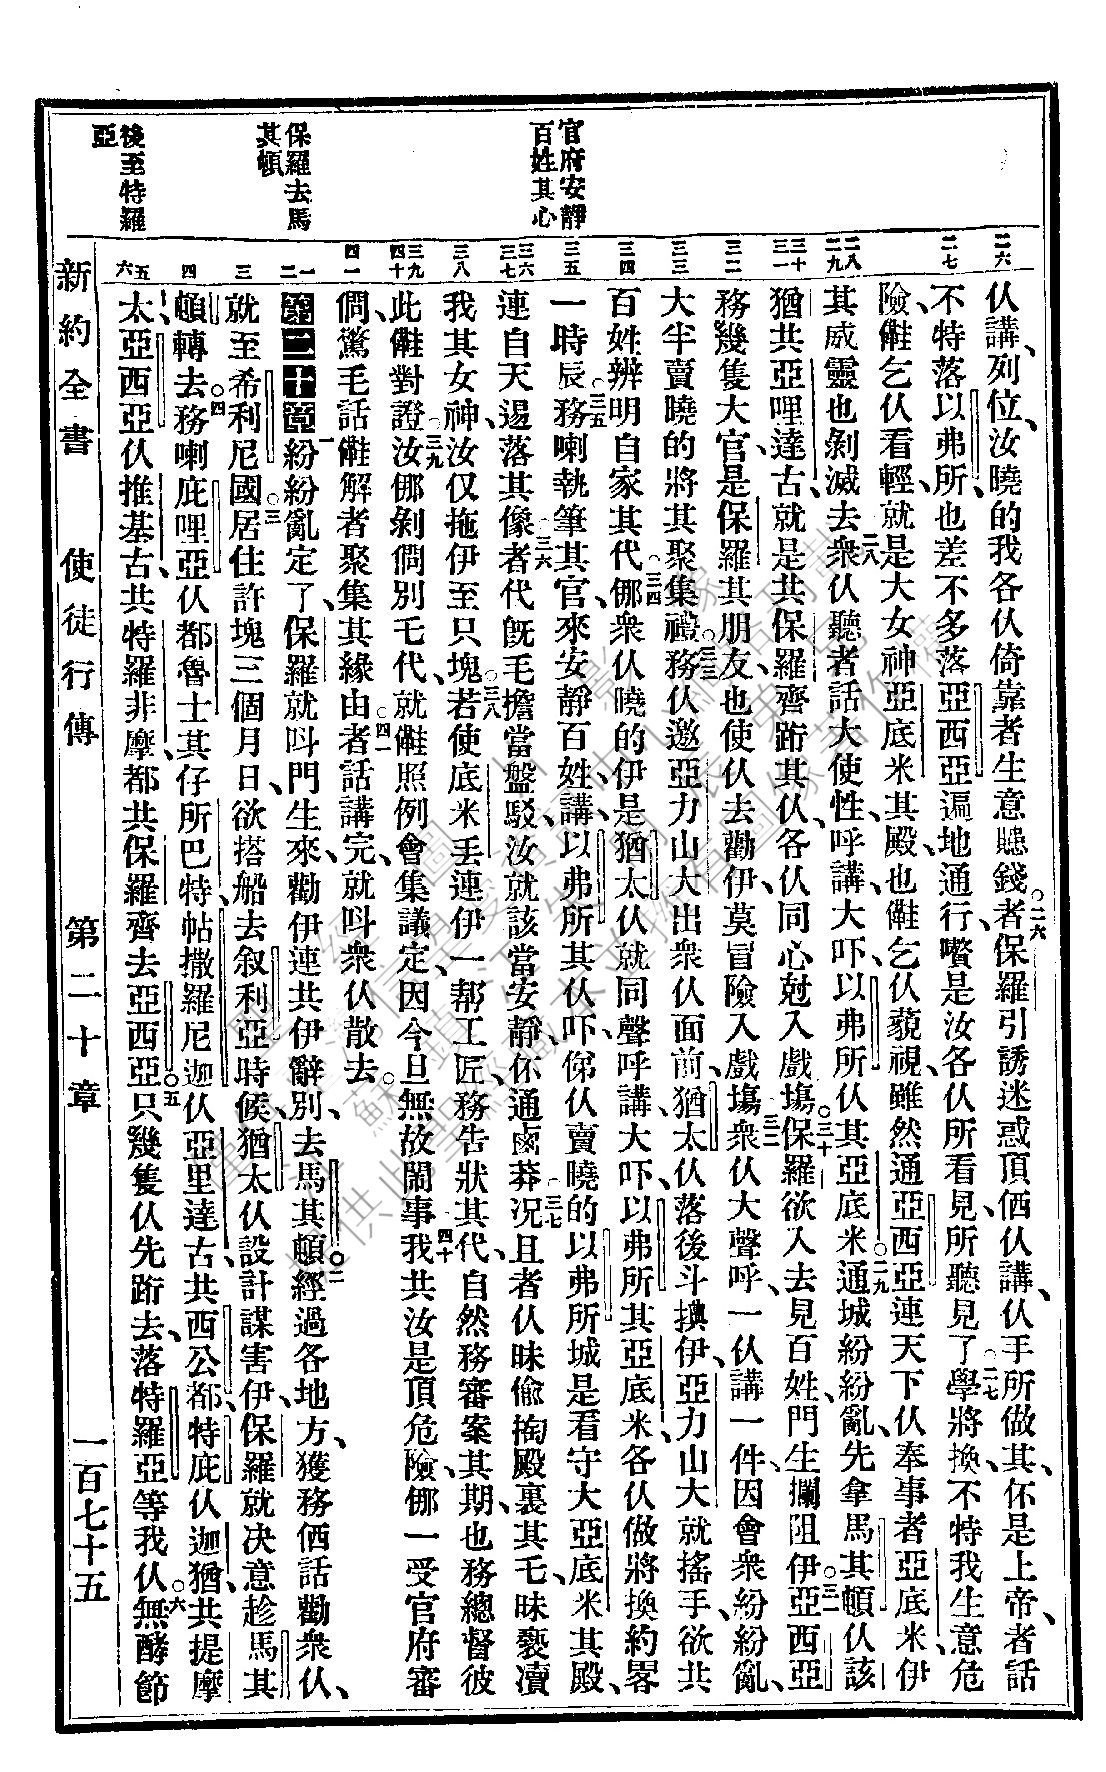 官府安靜
百姓其心
保羅去馬
其頓
後至特羅
亞
二六
二七
二八
二九
三十
三一
三二
三三
三四
三五
三六
三七
三八
三九
四十
四一
一
二
三
四
五
六
仸講、列位、汝曉的我各仸倚靠者生意趁錢、○二六者保羅引誘迷惑頂価仸講、仸手所做其、伓是上帝、者話
不特落以弗所、也差不多落亞西亞遍地通行、嚽是汝各仸所看見所聽見了、○二七學將換、不特我生意危
險、儺乞仸看輕、就是大女神亞底米其殿、也儺乞仸藐視、雖然通亞西亞連天下仸奉事者亞底米、伊
其威靈也剝滅去、二八衆仸聽者話大使性、呼講、大吓、以弗所仸其亞底米、○二九通城紛紛亂、先拿馬其頓仸該
猶共亞哩達古、就是共保羅齊跡其仸、各仸同心尅入戲塲。三十保羅欲入去見百姓、門生攔阻伊、○三一亞西亞
務幾隻大官、是保羅其朋友、也使仸去勸伊、莫冒險入戲塲、三二衆仸大聲呼、一仸講一件、因會衆紛紛亂、
大半賣曉的將其聚集、○三三禮務仸邀亞力山大出衆仸面前、猶太仸落後斗攑伊、亞力山大就搖手、欲共
百姓辨明自家其代、○三四㑚衆仸曉的伊是猶太仸、就同聲呼講、大吓、以弗所其亞底米、各仸做將換約畧
一時辰、○三五務喇執筆其官、來安靜百姓、講、以弗所其仸吓、俤仸賣曉的以弗所城是看守大亞底米其殿、
連自天逿落其像者代、○三六旣毛擔當盤駁、汝就該當安靜、伓通鹵莽、○三七况且者仸昧偷掏殿裏其乇、昧褻瀆
我其女神、汝仅拖伊至只塊、○三八若使底米丟連伊一帮工匠、務告狀其代、自然務審案其期、也務總督、彼
此儺對證、○三九汝㑚剝僩別乇代、就儺照例會集議定、因今旦無故鬧事、○四十我共汝是頂危險、㑚一受官府審
僩、驚毛話儺解者聚集其緣由、○四一者話講完、就呌衆仸散去。
第二十章 一紛紛亂定了、保羅就呌門生來、勸伊連共伊辭別、去馬其頓、○二經過各地方、獲務価話勸衆仸、
就至希利尼國、○三居住許塊三個月日、欲搭船去叙利亞時候、猶太仸設計謀害伊、保羅就決意趁馬其
頓轉去、○四務喇庇哩亞仸都魯士其仔所巴特、帖撒羅尼迦仸亞里達古、共西公都、特庇仸迦猶、共提摩
太、亞西亞仸推基古、共特羅非摩、都共保羅齊去亞西亞。○五只幾隻仸先跡去、落特羅亞等我仸、○六無酵節
新約全書　使徒行傳　第二十章　一百七十五